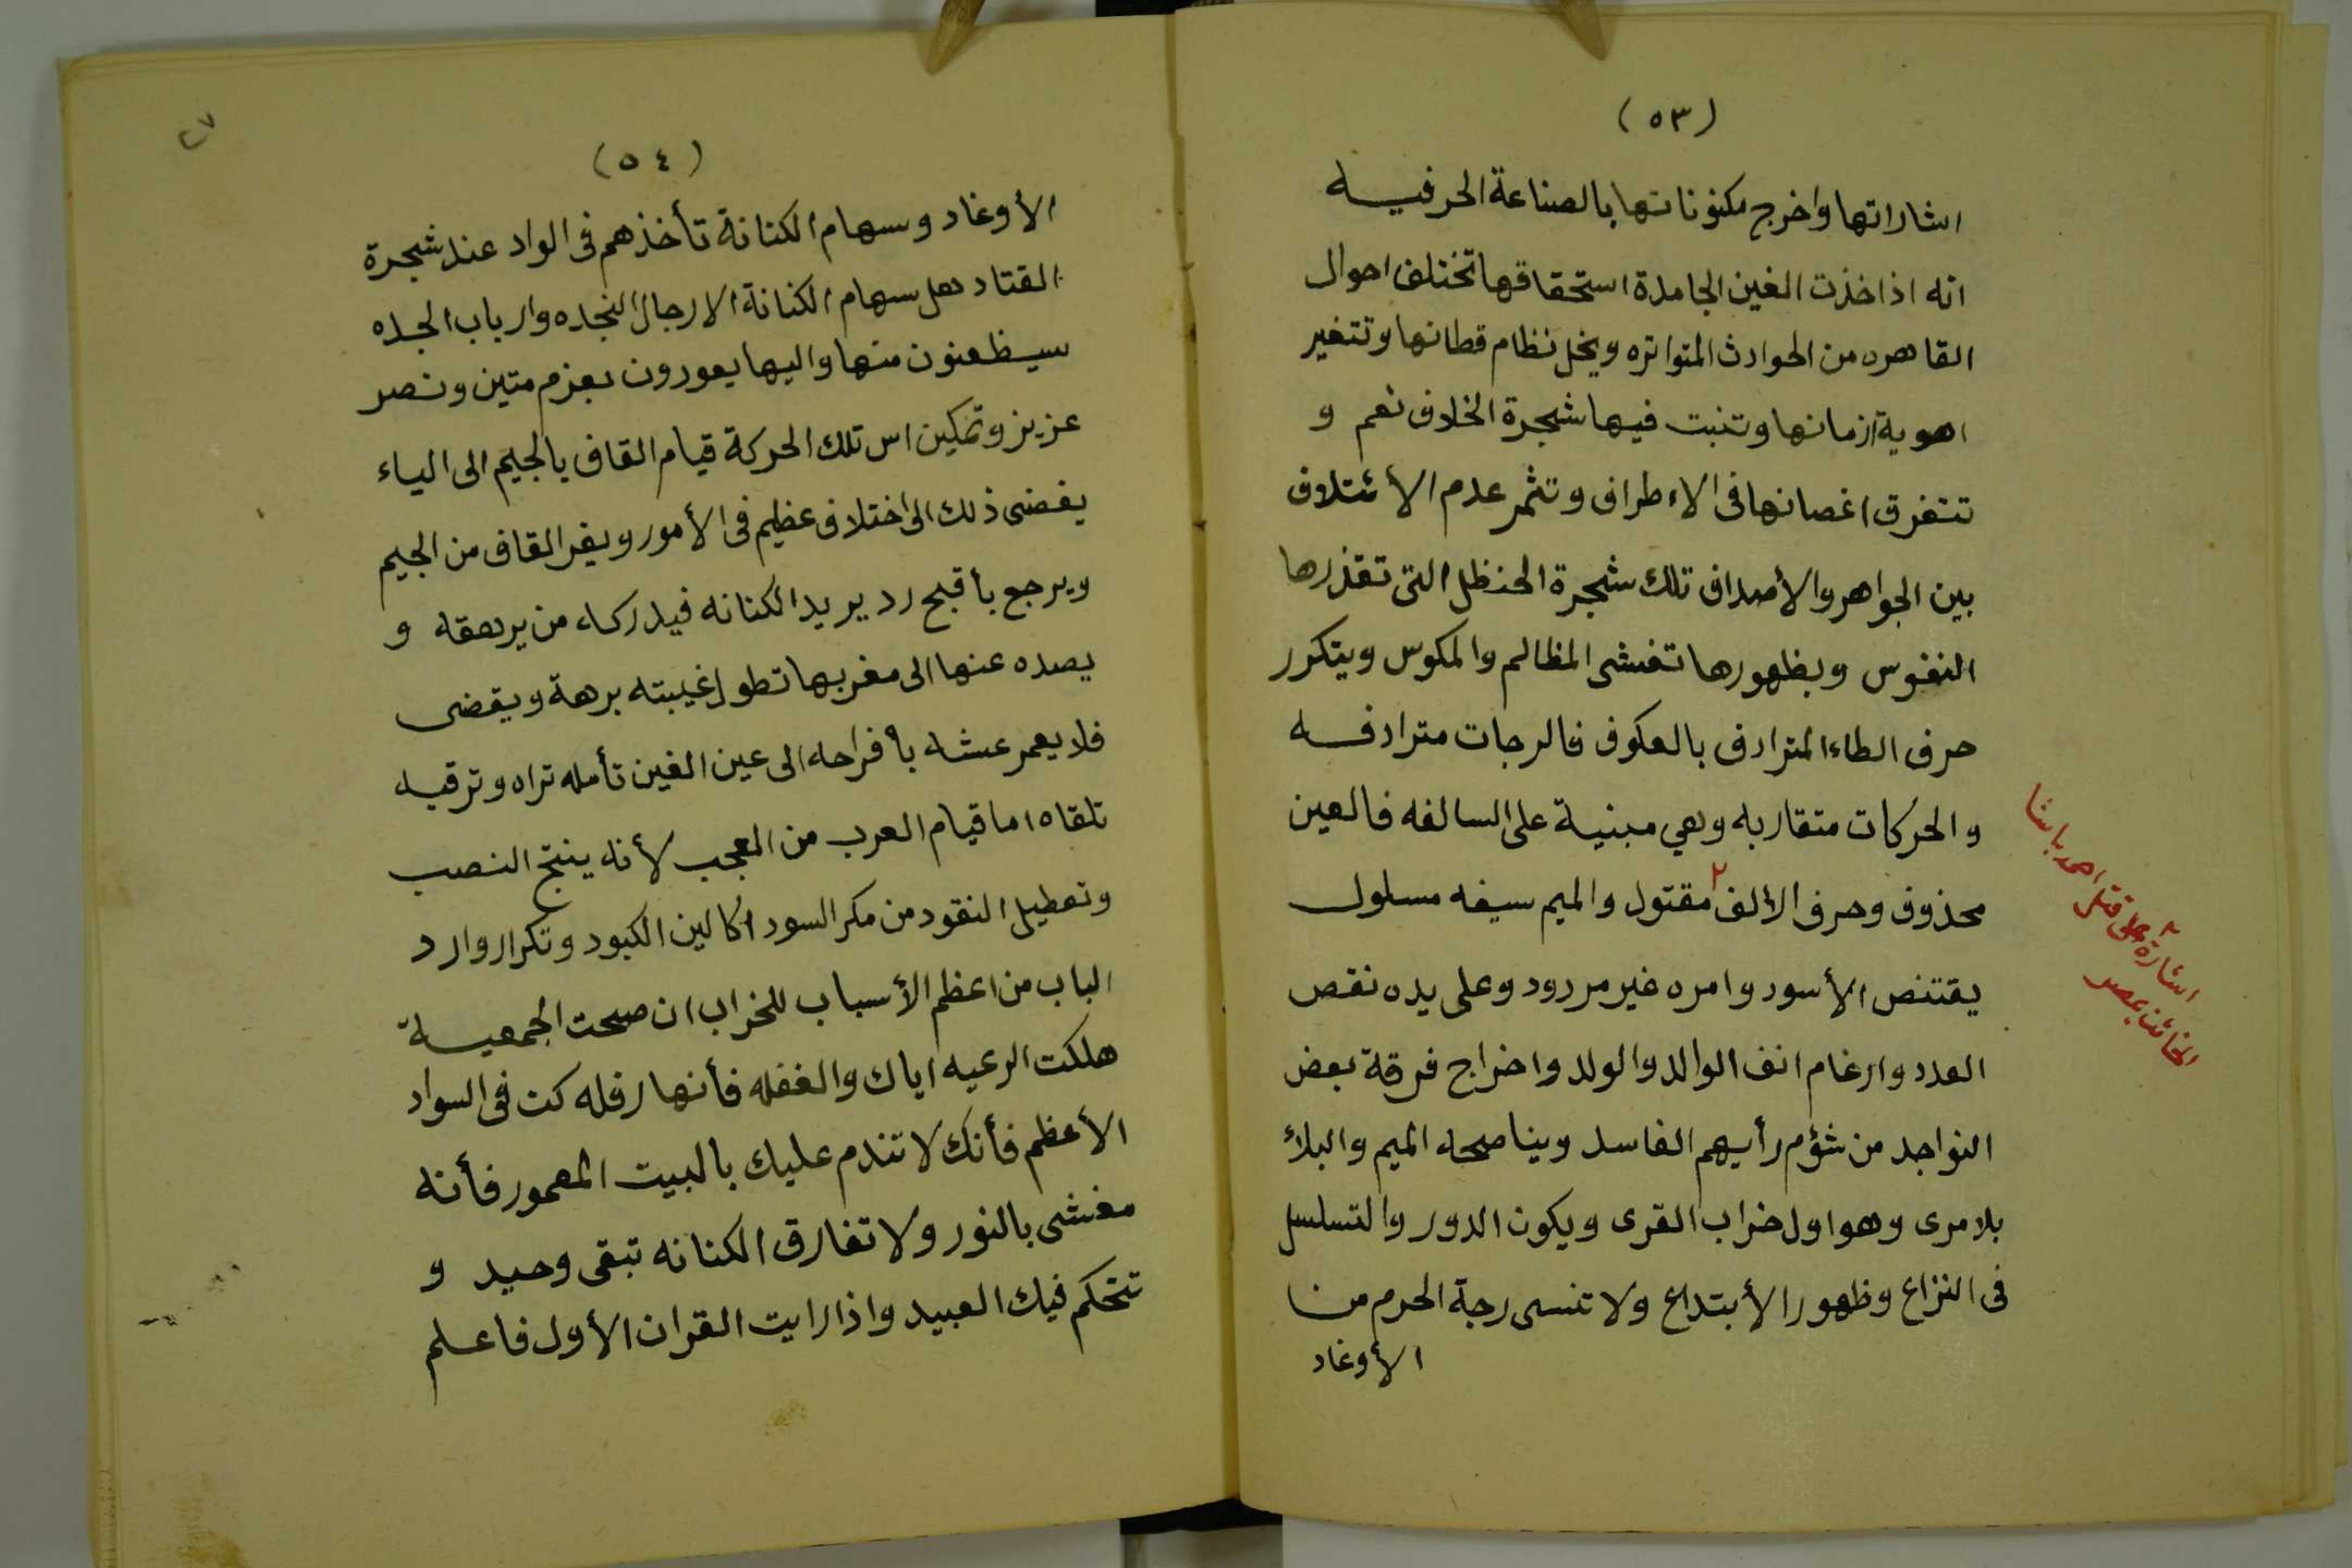 (٥٣)
اشاراتها واخرج مكنوناتها بالصناعة الحرفيه
انه اذا خذت الغين الجامدة استحقاقها تختلف احوال
القاهره من الحوادث المتواتره ويخل نظام قطانها وتتغير
اهوية ازمانها وتنبت فيها شجرة الخلاف نعم و
تتفرق اغصانها فى الاءطراف وتثمر عدم الأئتلاف
بين الجواهر والأصداف تلك شجرة الحنظل التى تقذرها
النفوس وبظهورها تفشى المظالم والمكوس ويتكرر
حرف الطاء المترادف بالعكوف فالرجات مترادفه
والحركات متقاربه وهي مبنية على السالفه فالعين
محذوف وحرف الألف٢ مقتول والميم سيفه مسلول
يقتنص الأسود وامره غير مردود وعلى يده نقص
العدد وارغام انف الوالد والولد واخراج فرقة بعض
النواجد من شؤم رأيهم الفاسد ويناصحه الميم والبلاء
بلا مرى وهو اول خراب القرى ويكون الدور والتسلسل
فى النزاع وظهور الأبتداع ولا تنسى رجة الحرم من
الأوغاد
٢
اشارة الى قتل احمد باشا
الخائن بمصر
٢٧
(٥٤)
الأوغاد وسهام الكنانة تأخذهم فى الواد عند شجرة
القتاد هل سهام الكنانة الا رجال النجده وارباب الجده
سيظعنون منها واليها يعودون بعزم متين ونصر
عزيز وتمكين اس تلك الحركة قيام القاف بالجيم الى الياء
يفضى ذلك الى اختلاف عظيم فى الأمور ويفر القاف من الجيم
ويرجع بأقبح رد يريد الكنانه فيدركه من يرهقه و
يصده عنها الى مغربها تطول غيبته برهة ويقضى
فلا يعمر عشه بأفراحه الى عين الغين تأمله تراه وترقبه
تلقاه اما قيام العرب من العجب لأنه ينتج النصب
وتعطيل النقود من مكر السود اكالين الكبود وتكرار وارد
الباب من اعظم الأسباب للخراب ان صحت الجمعية
هلكت الرعيه اياك والغفله فأنها زفله كن فى السواد
الأعظم فأنك لا تندم عليك بالبيت المعمور فأنه
مغشى بالنور ولا تفارق الكنانه تبقى وحيد و
تتحكم فيك العبيد واذا رايت القران الأول فاعلم